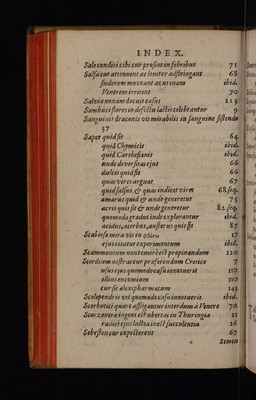 INDEX.
Sale conditi cibi cur prosint in febribus 71
Salsa cur attenuent ac leniter adstringant 68
sudorem moveant ac urinam ibid.
Ventrem irritent 70
Salvia nuxam docuit casus 115
Sambuci flores in defectu lactis celebrantur 9
Sanguinis draconis vis mirabilis in sanguine sistendo
37
Sapor quid sit 64
quid Chymicis ibid.
quid Carthesianis ibid.
unde diversitas ejus 66
dulcis quid sit 66
quas vires arguat 67
quid salsus, & quas indicet vires 68. seq.
amarus quid & unde generetur 75
acris quis sit & unde generetur 82. seq.
quomodo gradus inde explorantur ibid.
acidus, acerbus, austerus quis sit 87
Scabiosa mira vis in 17
ejus citatur experimentum ibid.
Scammoneum non temere est propinandum 110
Scordium nostras cur præferendum Cretico 7
usus ejus quomodo casu innotuerit 110
illius encomium 110
cur sit alexipharmacum 143
Scolopendriæ vis quomodo casu innotuerit ibid.
Scorbutici quare affligantur interdum à Venere 70
Scorzonera ingens est ubertas in Thuringia 11
radici ejus lactea inest succulentia 26
Sebesten cur expectorent 67
Semen